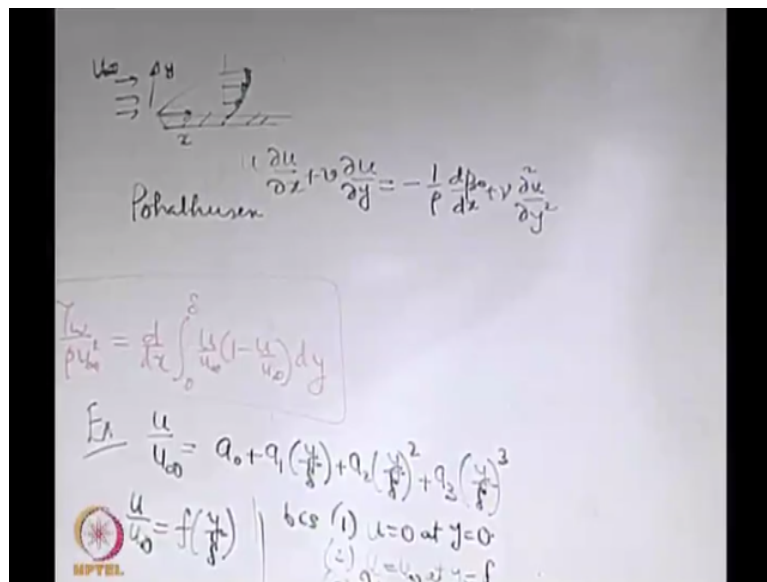 U∞ y
x
u ∂u/∂x + v ∂u/∂y = - 1/ρ dp∞/dx + ν ∂²u/∂y²
Pohalhusen
τw/ρu∞² = d/dx ∫₀^δ u/u∞ (1 - u/u∞) dy
Ex u/u∞ = a₀ + a₁(y/δ) + a₂(y/δ)² + a₃(y/δ)³
u/u∞ = f(y/δ) bcs (1) u=0 at y=0
(2) u=u∞ at y=δ
NPTEL